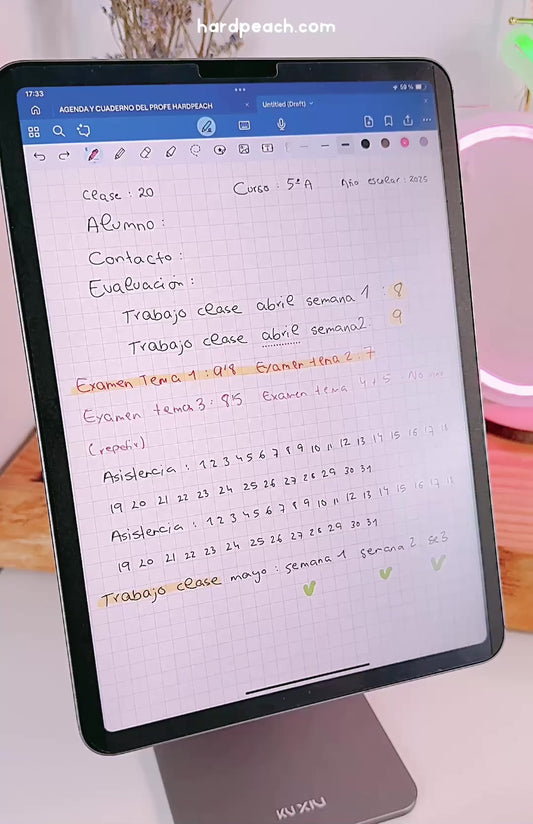 hardpeach.com
17:33
59 %
AGENDA Y CUADERNO DEL PROFE HARDPEACH
Untitled (Draft)
Clase : 20 Curso : 5º A Año escolar : 2025
Alumno :
Contacto :
Evaluación :
Trabajo clase abril semana 1 : 8
Trabajo clase abril semana 2: 9
Examen Tema 1 : 9'8 Examen tema 2 : 7
Examen tema 3 : 8'5 Examen tema 4 + 5 No
(repetir)
Asistencia : 1 2 3 4 5 6 7 8 9 10 11 12 13 14 15 16 17 18
19 20 21 22 23 24 25 26 27 28 29 30 31
Asistencia : 1 2 3 4 5 6 7 8 9 10 11 12 13 14 15 16 17 18
19 20 21 22 23 24 25 26 27 28 29 30 31
Trabajo clase mayo : semana 1 semana 2 se3
KUXIU